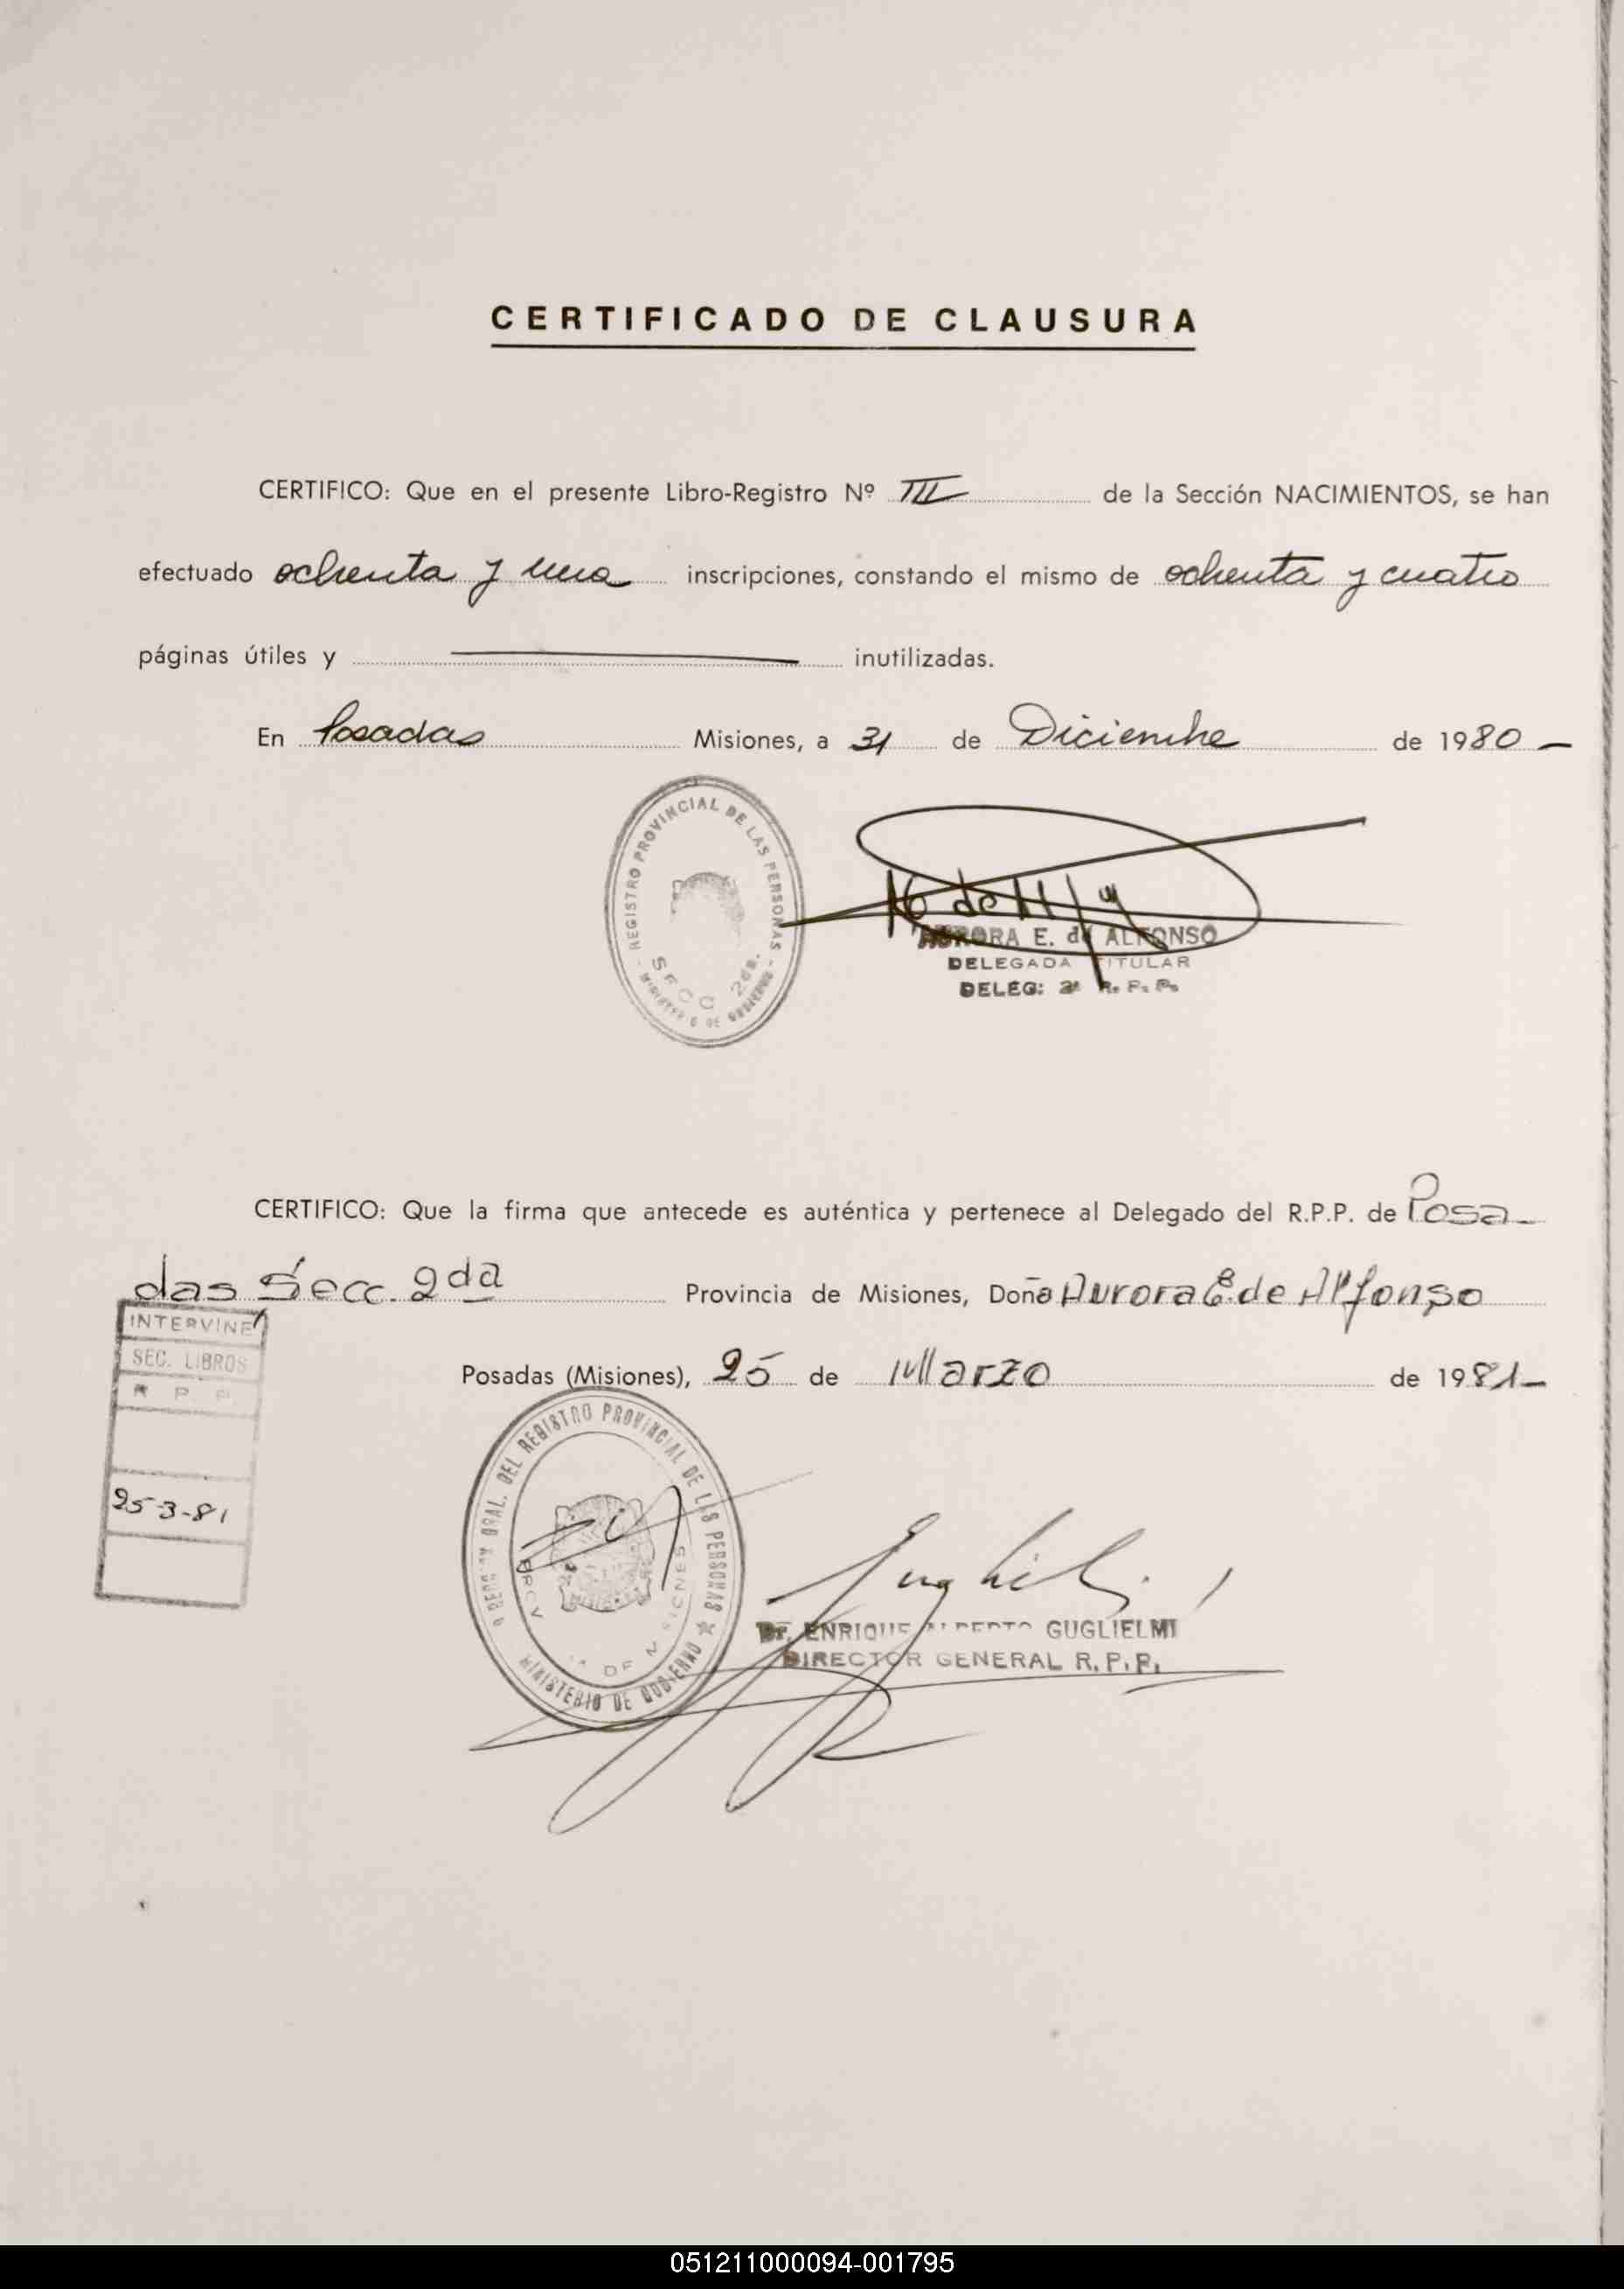 CERTIFICADO DE CLAUSURA
CERTIFICO: Que en el presente Libro-Registro Nº III de la Sección NACIMIENTOS, se han
efectuado ochenta y una inscripciones, constando el mismo de ochenta y cuatro
páginas útiles y inutilizadas.
En Posadas Misiones, a 31 de Diciembre de 1980 –
REGISTRO PROVINCIAL DE LAS PERSONAS
MINISTERIO DE GOBIERNO
SECC 2da.
AURORA E. de ALFONSO
DELEGADA TITULAR
DELEG: 2ª R. P. P.
CERTIFICO: Que la firma que antecede es auténtica y pertenece al Delegado del R.P.P. de Posa-
das Secc. 2da Provincia de Misiones, Doña Aurora E. de Alfonso
INTERVINE
SEC. LIBROS
R P P
25-3-81
Posadas (Misiones), 25 de Marzo de 1981-
GRAL. DEL REGISTRO PROVINCIAL DE LAS PERSONAS
MINISTERIO DE GOBIERNO
DE MISIONES
Dr. ENRIQUE ALBERTO GUGLIELMI
DIRECTOR GENERAL R. P. P.
051211000094-001795